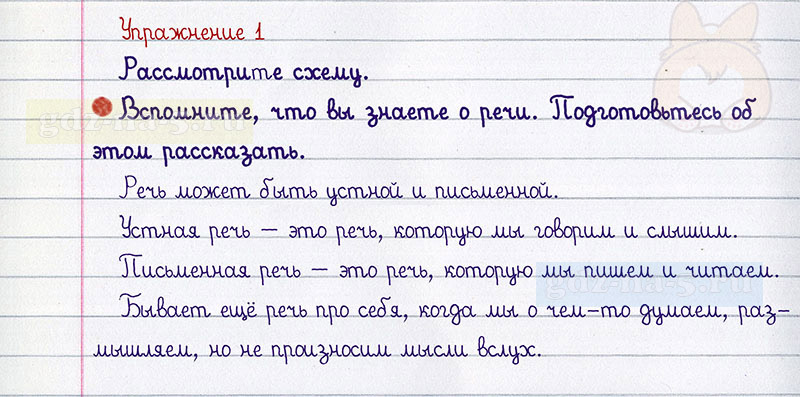 Упражнение 1
Рассмотрите схему.
Вспомните, что вы знаете о речи. Подготовьтесь об
этом рассказать.
Речь может быть устной и письменной.
Устная речь — это речь, которую мы говорим и слышим.
Письменная речь — это речь, которую мы пишем и читаем.
Бывает ещё речь про себя, когда мы о чем-то думаем, раз-
мышляем, но не произносим мысли вслух.
gdz-na-5.ru
gdz-na-5.ru